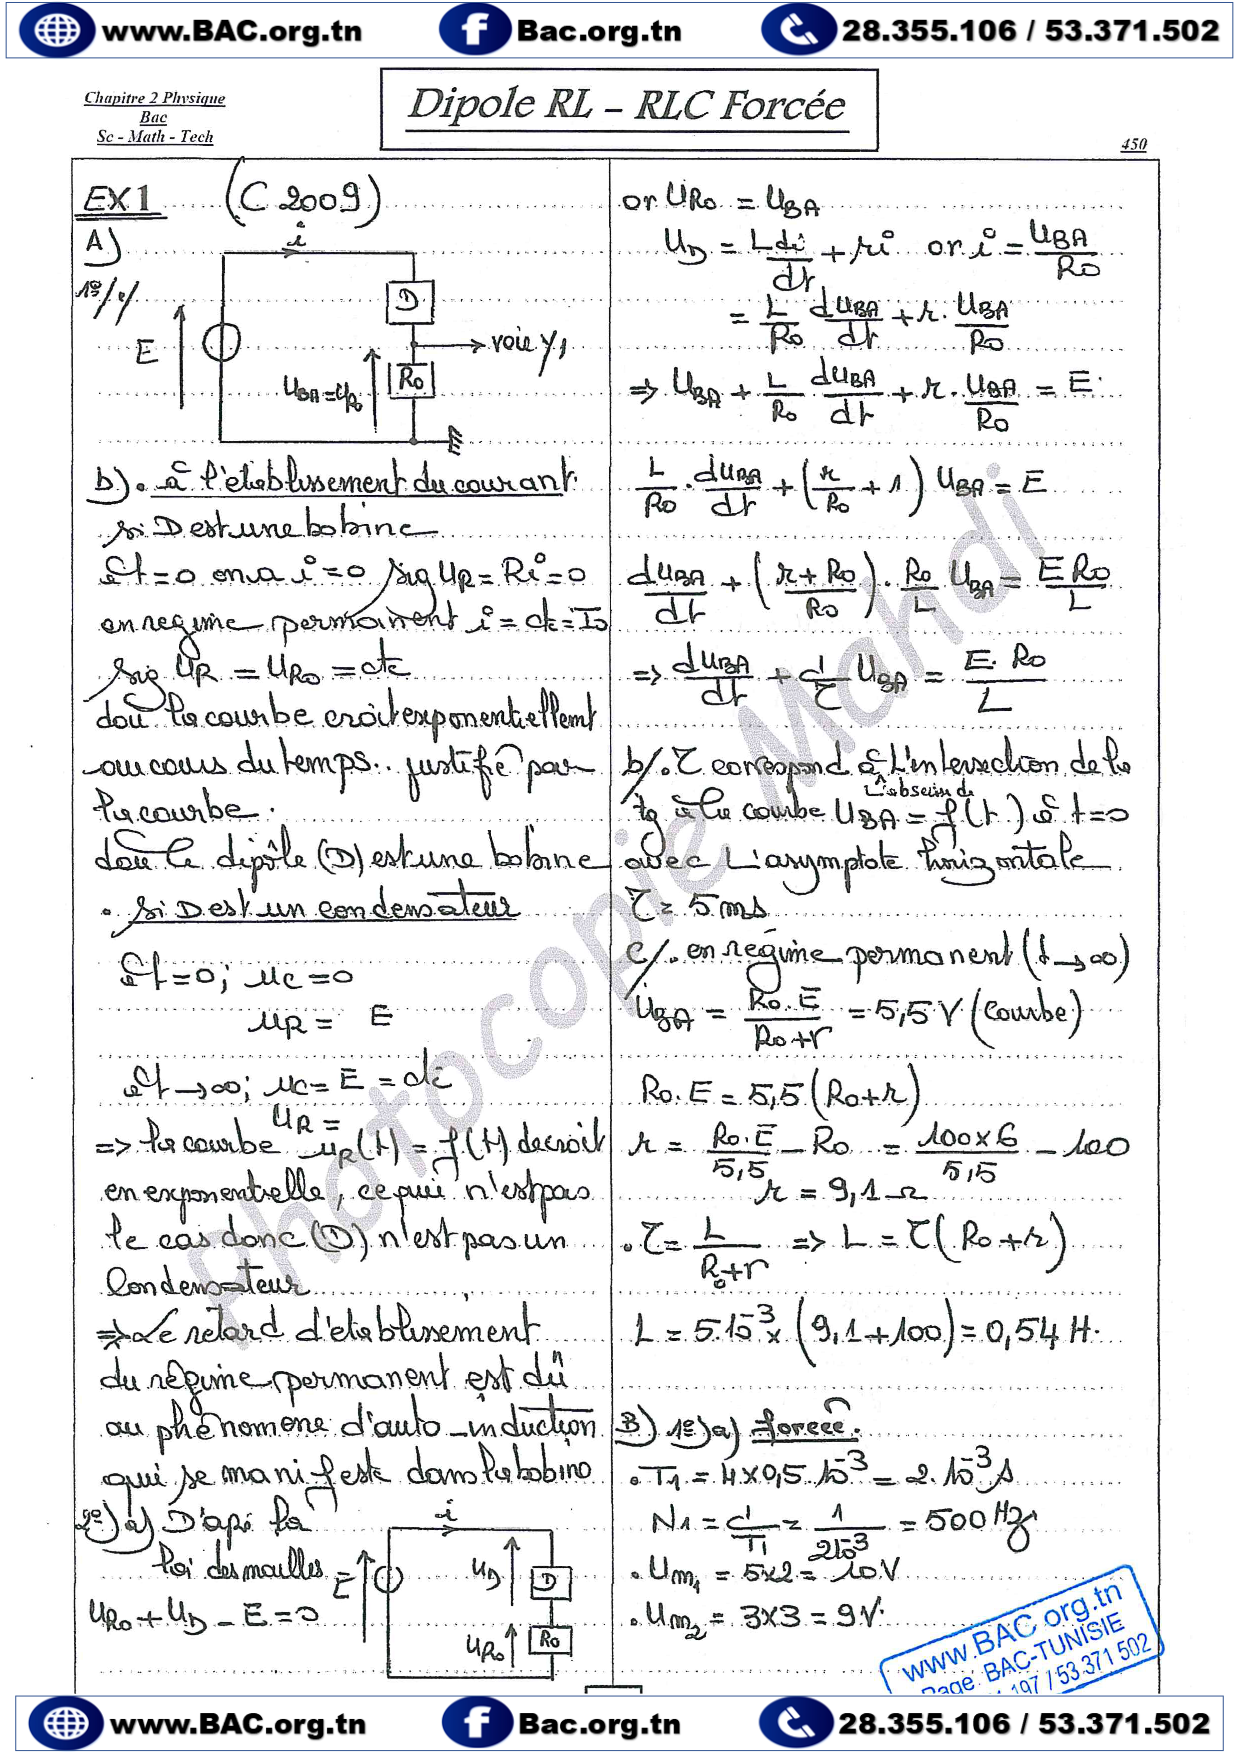 www.BAC.org.tn Bac.org.tn 28.355.106 / 53.371.502
Chapitre 2 Physique
Bac
Sc - Math - Tech
Dipole RL – RLC Forcée
450
EX1 (C 2009)
A)
1°/a/
i
E
D
voie Y1
Ro
UBA=URo
b). à l'établissement du courant
si D est une bobine
à t=0 on a i=0 sig UR = Ri = 0
en regime permanent i = cte = Io
sig UR = URo = cte
doù la courbe croit exponentiellemt
au cours du temps.. justifié par
la courbe.
doù le dipôle (D) est une bobine
• si D est un condensateur
à t=0; uc=0
uR = E
à t→∞; uc= E = cte
uR =
=> la courbe uR(t) = f(t) decroit
en exponentielle, ce qui n'est pas
le cas donc (D) n'est pas un
Condensateur
=> Le retard d'etablissement
du régime permanent est dû
au phénomène d'auto_induction
qui se manifeste dans la bobine
2°) a) D'apr la
loi des mailles
URo + UD - E = 0
i
E
UD
D
URo
Ro
or URo = UBA
UD = L di/dt + ri or i = UBA/Ro
= L/Ro dUBA/dt + r. UBA/Ro
=> UBA + L/Ro . dUBA/dt + r. UBA/Ro = E
L/Ro . dUBA/dt + (r/Ro + 1) UBA = E
dUBA/dt + (r+Ro/Ro) . Ro/L UBA = E Ro/L
=> dUBA/dt + 1/τ UBA = E. Ro/L
b/. τ correspond à L'intersection de la
L'abscisse de
tg à la courbe UBA = f(t) à t=0
avec L'asymptote horizontale
τ = 5ms
c/. en régime permanent (t→∞)
UBA = Ro.E/Ro+r = 5,5 V (courbe)
Ro.E = 5,5 (Ro+r)
r = Ro.E/5,5 - Ro = 100x6/5,5 - 100
r = 9,1 Ω
• τ = L/Ro+r => L = τ(Ro+r)
L = 5.10⁻³ x (9,1+100) = 0,54 H.
B) 1°) a) forcée.
• T1 = 4x0,5.10⁻³ = 2.10⁻³ s
N1 = 1/T1 = 1/2.10⁻³ = 500 Hz
• Um1 = 5x2 = 10V
• Um2 = 3x3 = 9V
Photocopie Mahdi
www.BAC.org.tn
Page: BAC-TUNISIE
197 / 53 371 502
www.BAC.org.tn Bac.org.tn 28.355.106 / 53.371.502